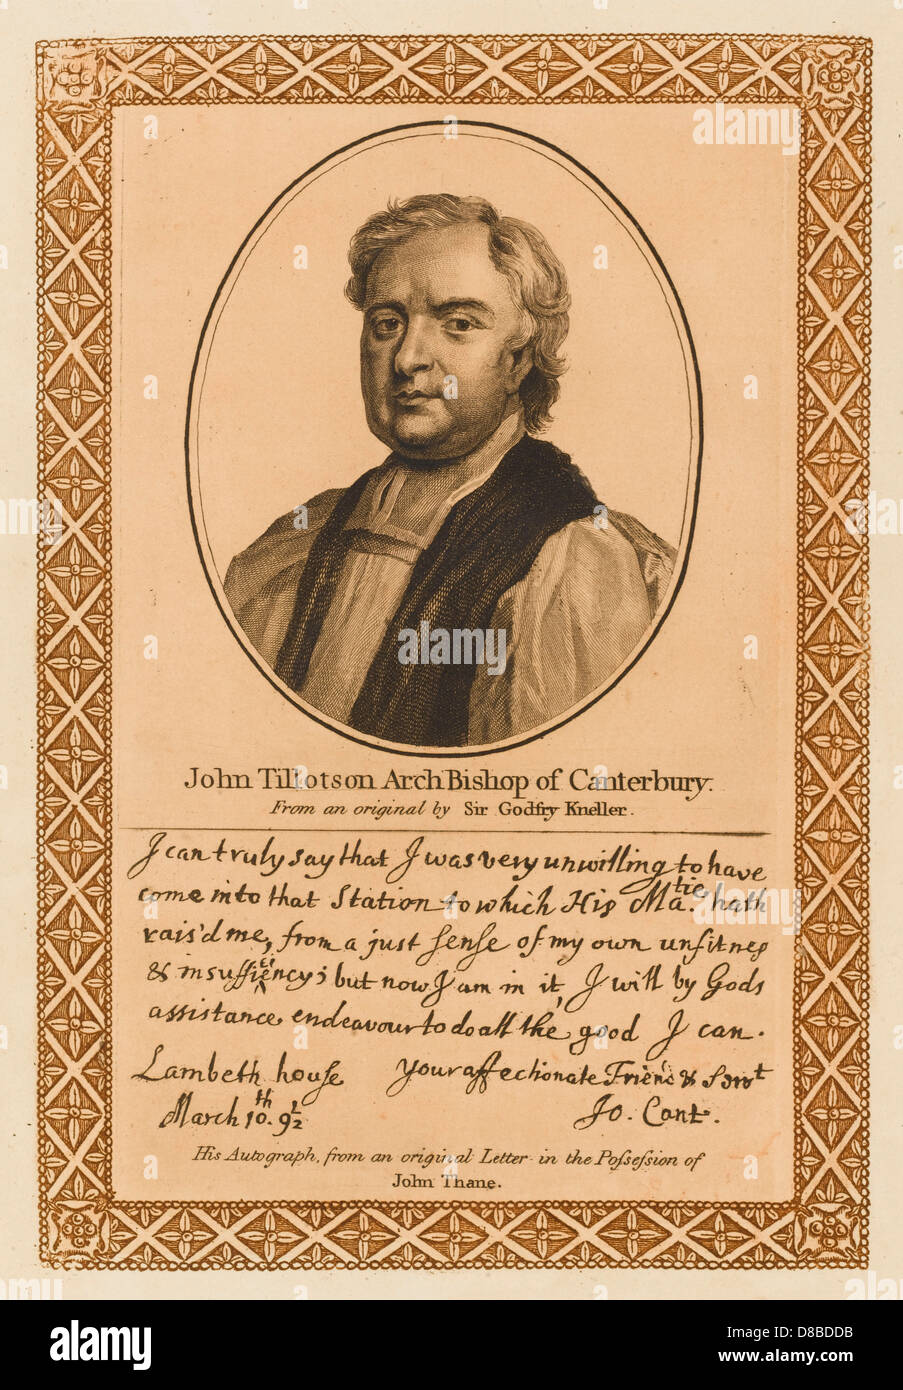 John Tillotson ArchBishop of Canterbury.
From an original by Sir Godfry Kneller.
I can truly say that I was very unwilling to have
come into that Station to which His Ma.tie hath
rais'd me, from a just sense of my own unfitness
& insufficiency; but now I am in it, I will by Gods
assistance endeavour to do all the good I can.
Lambeth house Your affectionate Friend & Servt
March 10th. 9½ Jo. Cant.
His Autograph, from an original Letter in the Possession of
John Thane.
alamy
alamy
Image ID: D8BDDB
www.alamy.com